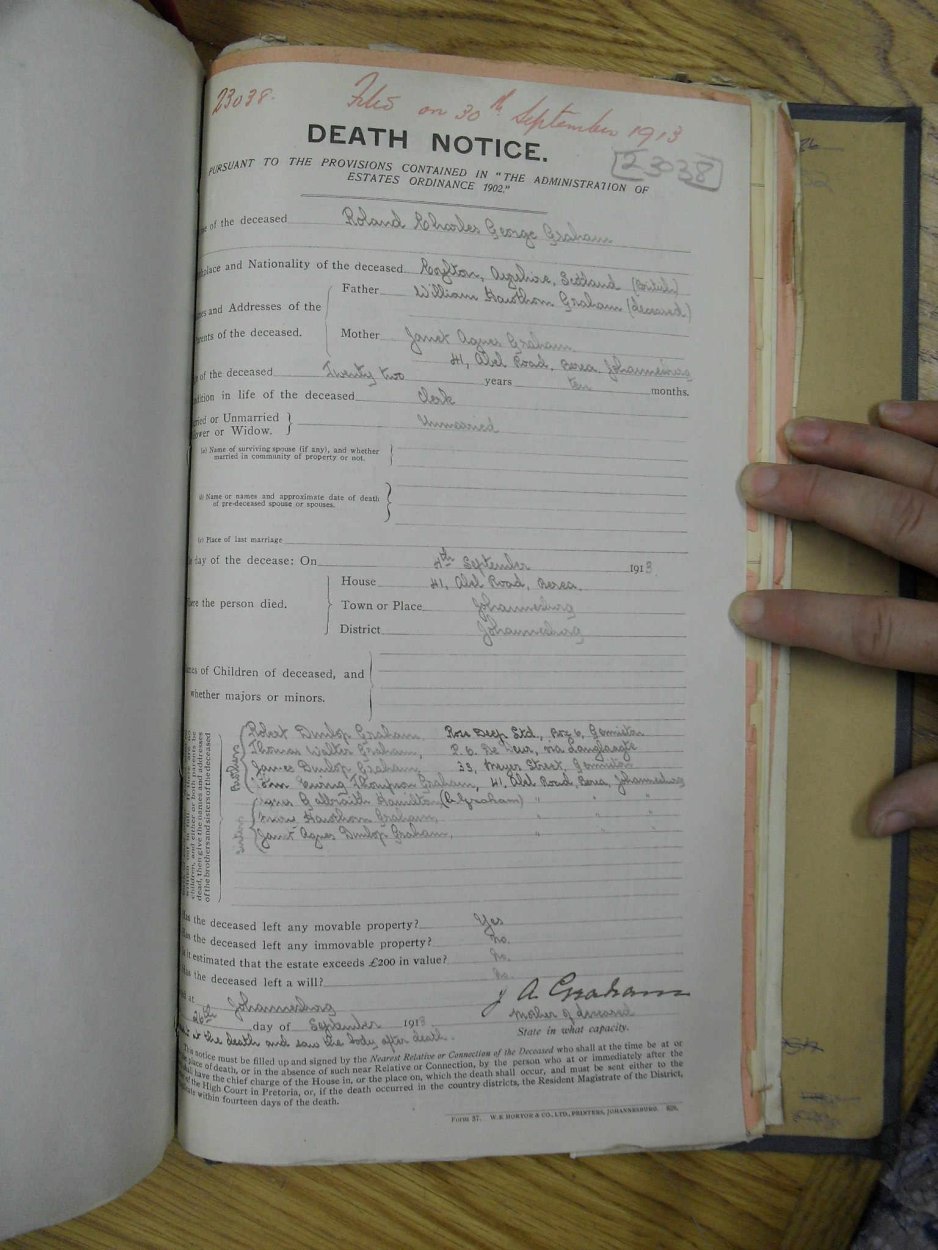 23038. Filed on 30th September 1913
DEATH NOTICE.
23038
PURSUANT TO THE PROVISIONS CONTAINED IN "THE ADMINISTRATION OF
ESTATES ORDINANCE 1902."
of the deceased Roland Charles George Graham
place and Nationality of the deceased Coylton, Ayrshire, Scotland (British)
and Addresses of the
of the deceased.
Father William Hawthorn Graham (deceased)
Mother Janet Agnes Graham
41, Abel Road, Berea Johannesburg
of the deceased Twenty two years ten months.
in life of the deceased Clerk
or Unmarried
or Widow. Unmarried
(a) Name of surviving spouse (if any), and whether
married in community of property or not.
(b) Name or names and approximate date of death
of pre-deceased spouse or spouses.
(c) Place of last marriage
day of the decease: On 4th September 1913
the person died.
House 41, Abel Road, Berea
Town or Place Johannesburg
District Johannesburg
of Children of deceased, and
whether majors or minors.
children, and either or both parents be
dead, then give the names and addresses
of the brothers and sisters of the deceased
Brothers
Robert Dunlop Graham Rose Deep Ltd, Box 6, Germiston
Thomas Walter Graham, P.O. Langlaagte
James Dunlop Graham 33, Meyer Street, Germiston
Ewing Thompson Graham, 41, Abel Road, Berea, Johannesburg
Sisters
Galbraith Hamilton (Graham) " " "
Hawthorn Graham, " " "
Janet Agnes Dunlop Graham, " " "
the deceased left any movable property? Yes
the deceased left any immovable property? No.
estimated that the estate exceeds £200 in value? No.
the deceased left a will? No.
at Johannesburg
J A Graham
26th day of September 1913
Mother of deceased
State in what capacity.
at the death and saw the body after death.
The notice must be filled up and signed by the Nearest Relative or Connection of the Deceased who shall at the time be at or
place of death, or in the absence of such near Relative or Connection, by the person who at or immediately after the
have the chief charge of the House in, or the place on, which the death shall occur, and must be sent either to the
of the High Court in Pretoria, or, if the death occurred in the country districts, the Resident Magistrate of the District,
within fourteen days of the death.
Form 37. W. E. HORTOR & CO., LTD., PRINTERS, JOHANNESBURG.